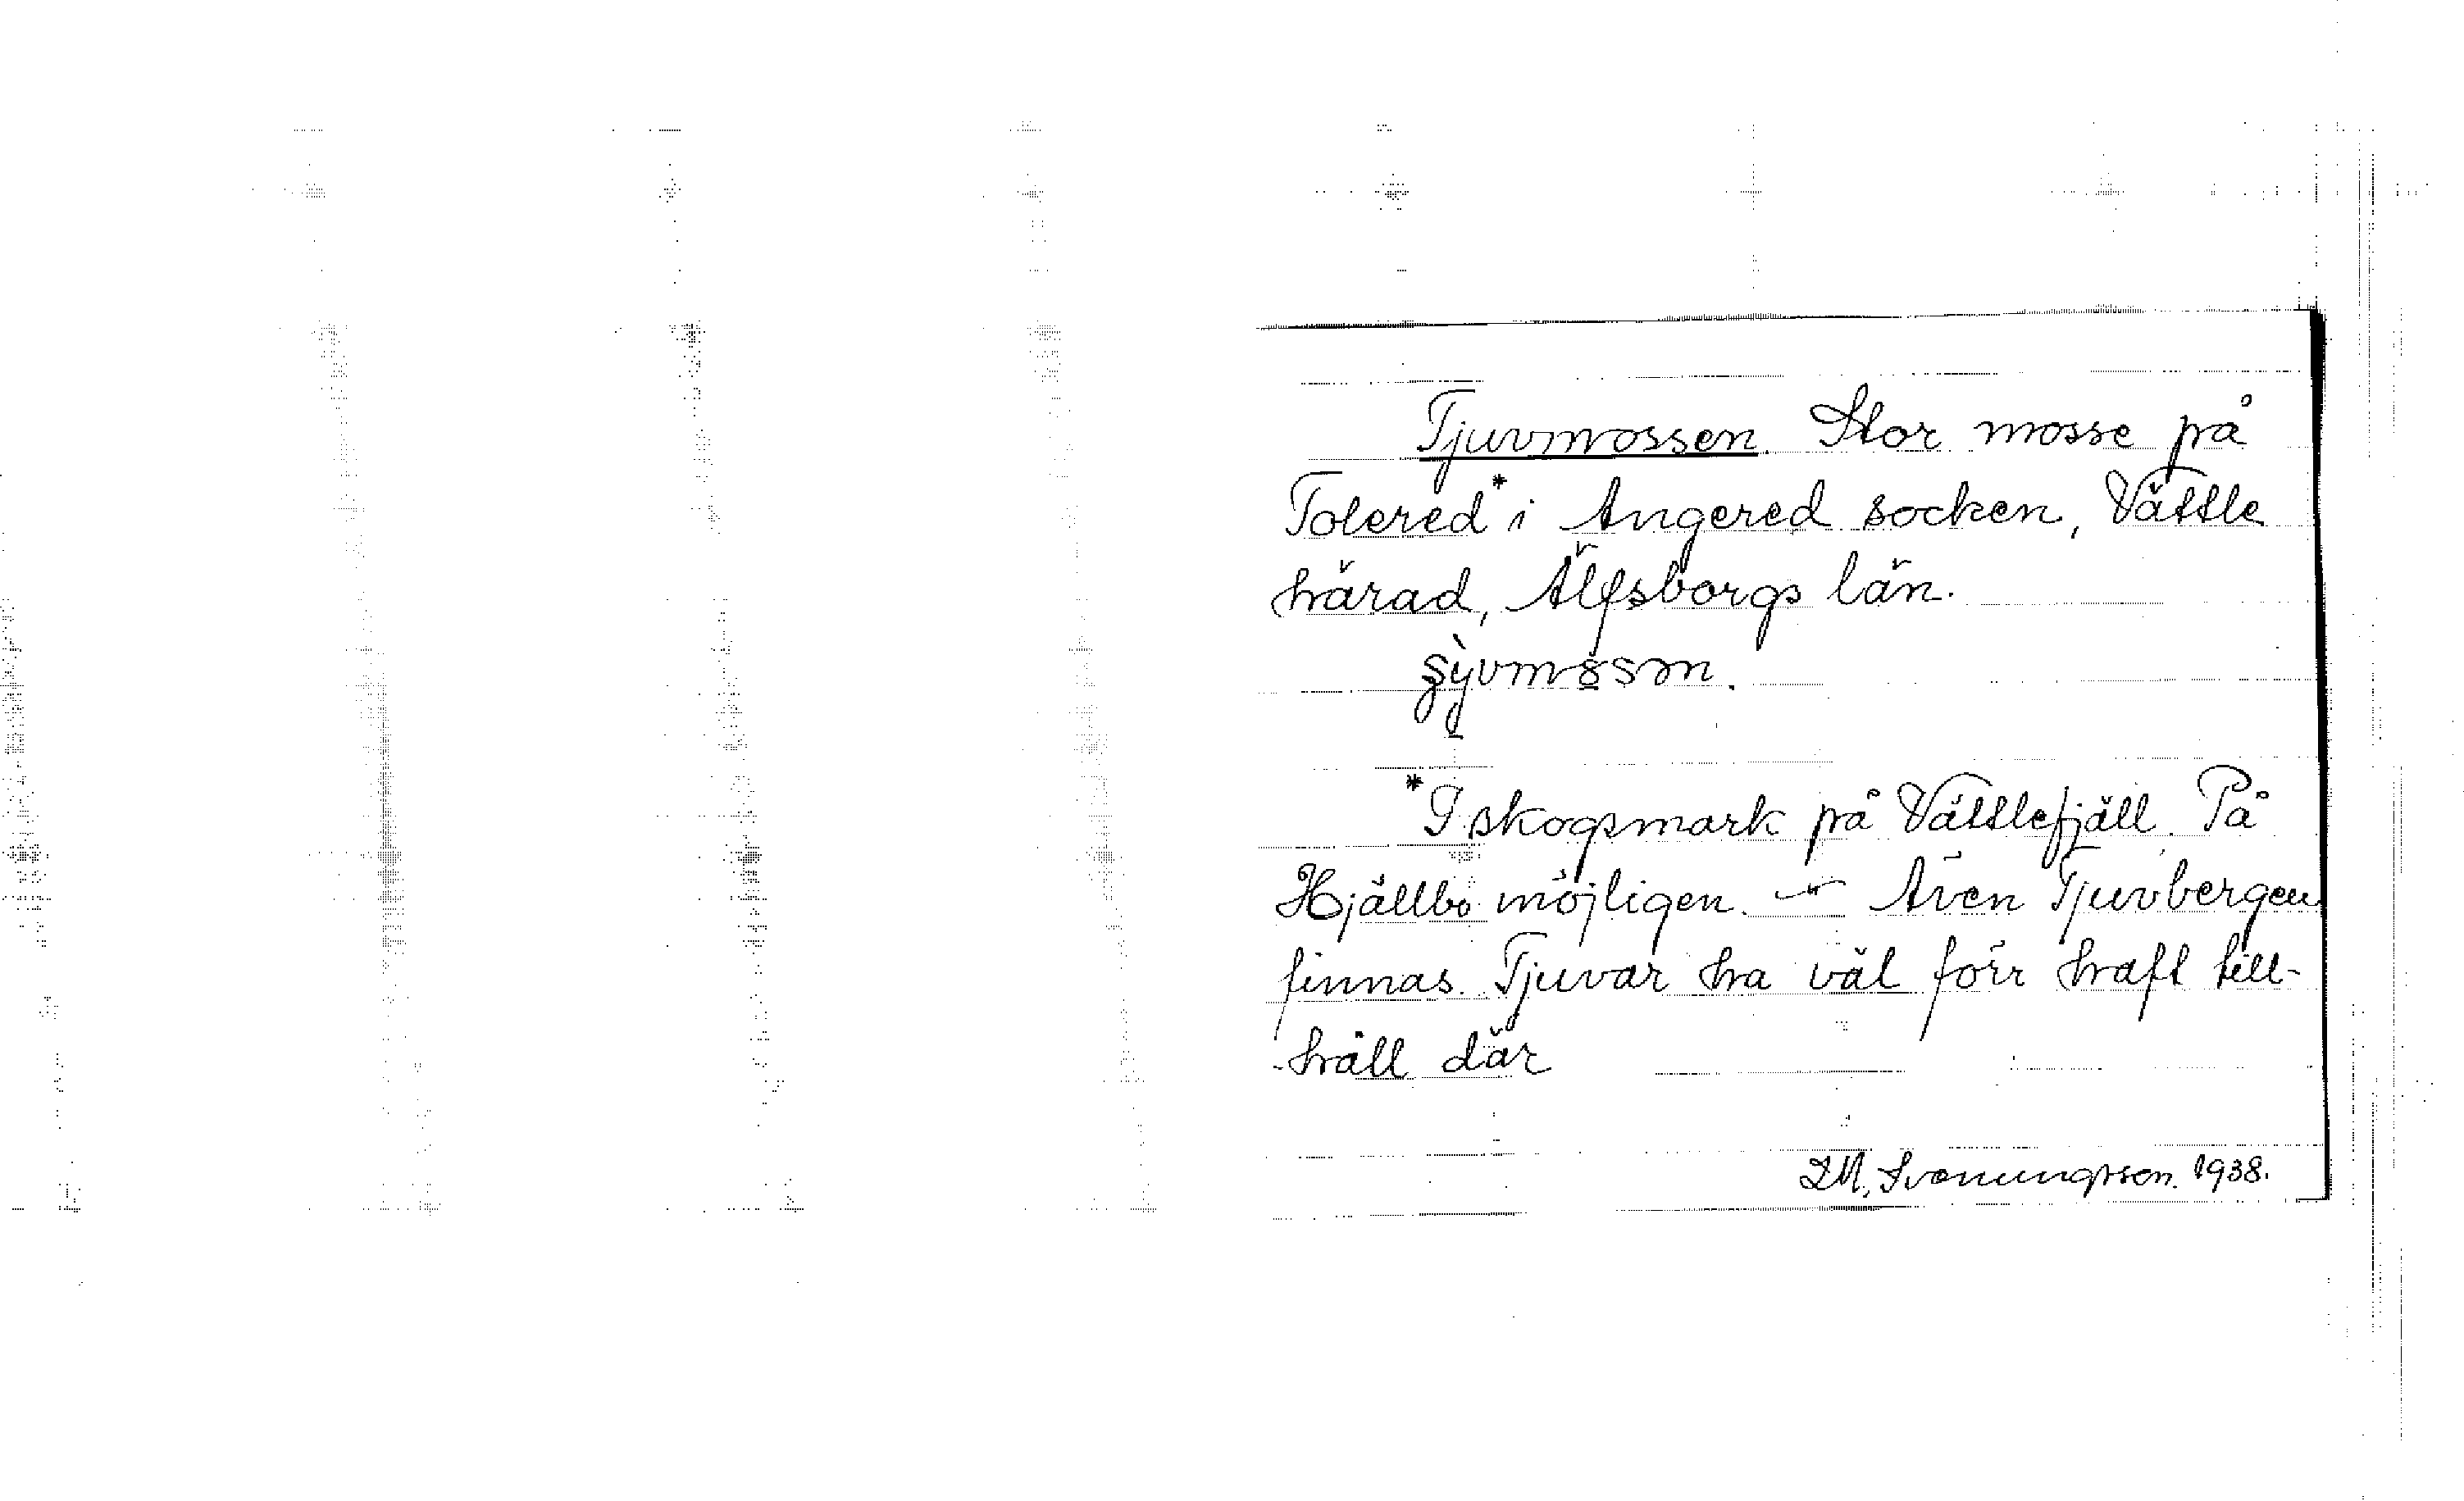 Tjuvmossen. Stor mosse på
Tolered* i Angered socken, Vättle
härad, Älfsborgs län.
*I skogsmark på Vättlefjäll. På
Hjällbo möjligen. — Även Tjuvbergen
finnas. Tjuvar ha väl förr haft till-
håll där
D.M. Svenungsson. 1938.